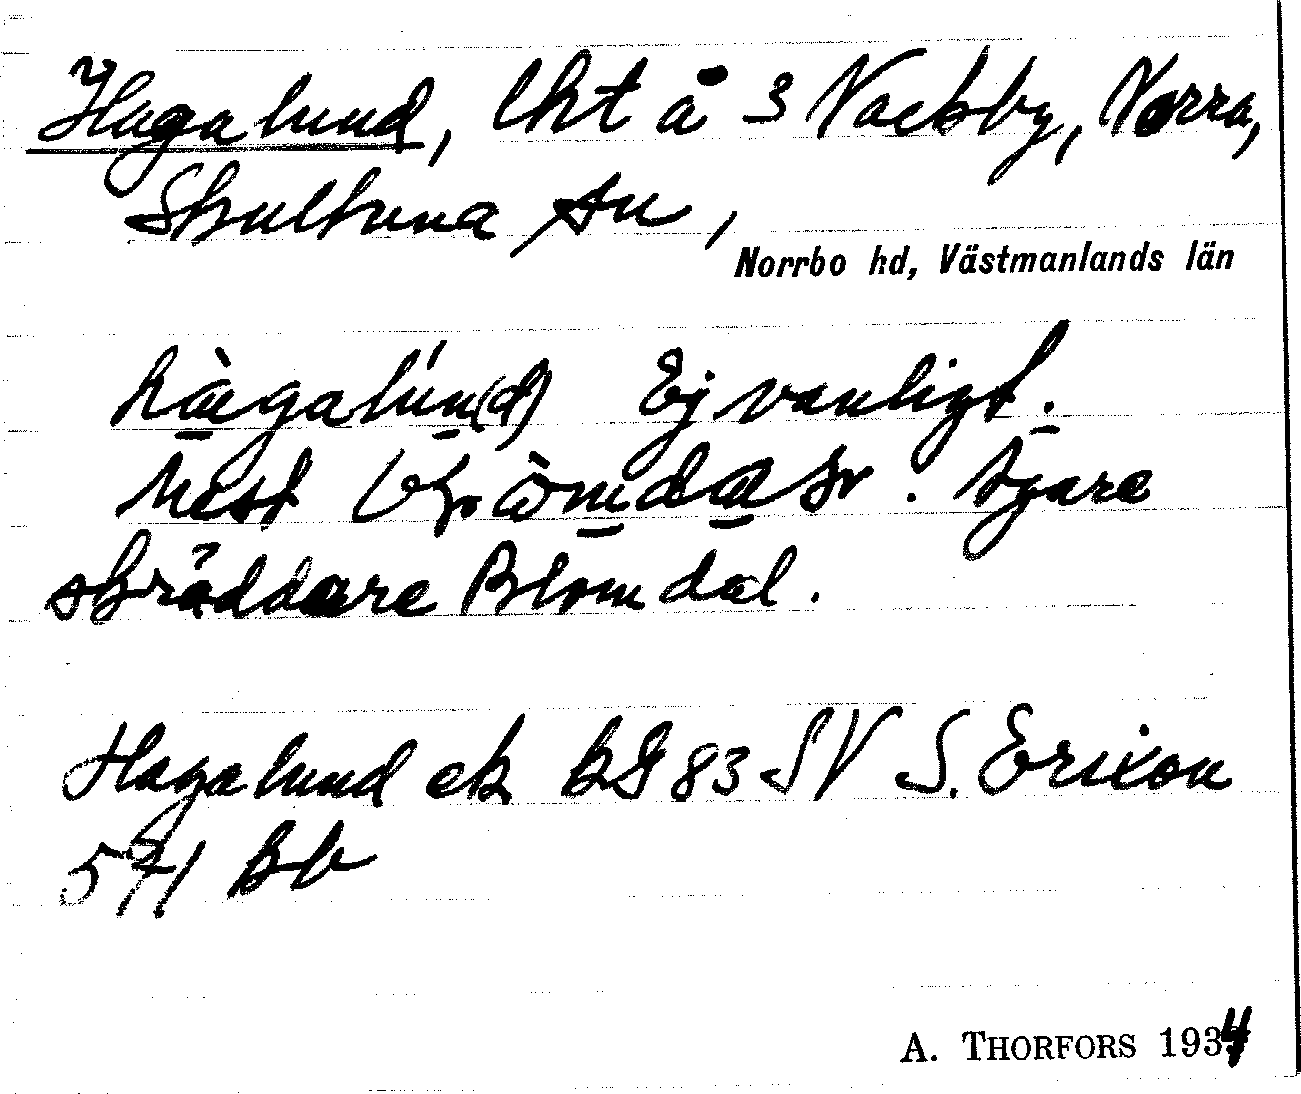 Hagalund, lht å 3 Nackby, Norra,
Skultuna sn,
Norrbo hd, Västmanlands län
hàgalún(d) Ej vanligt.
Mest
skräddare Blomdal.
Hagalund ek bg 83 SV S. Erixon
571 Bb
A. THORFORS 1934